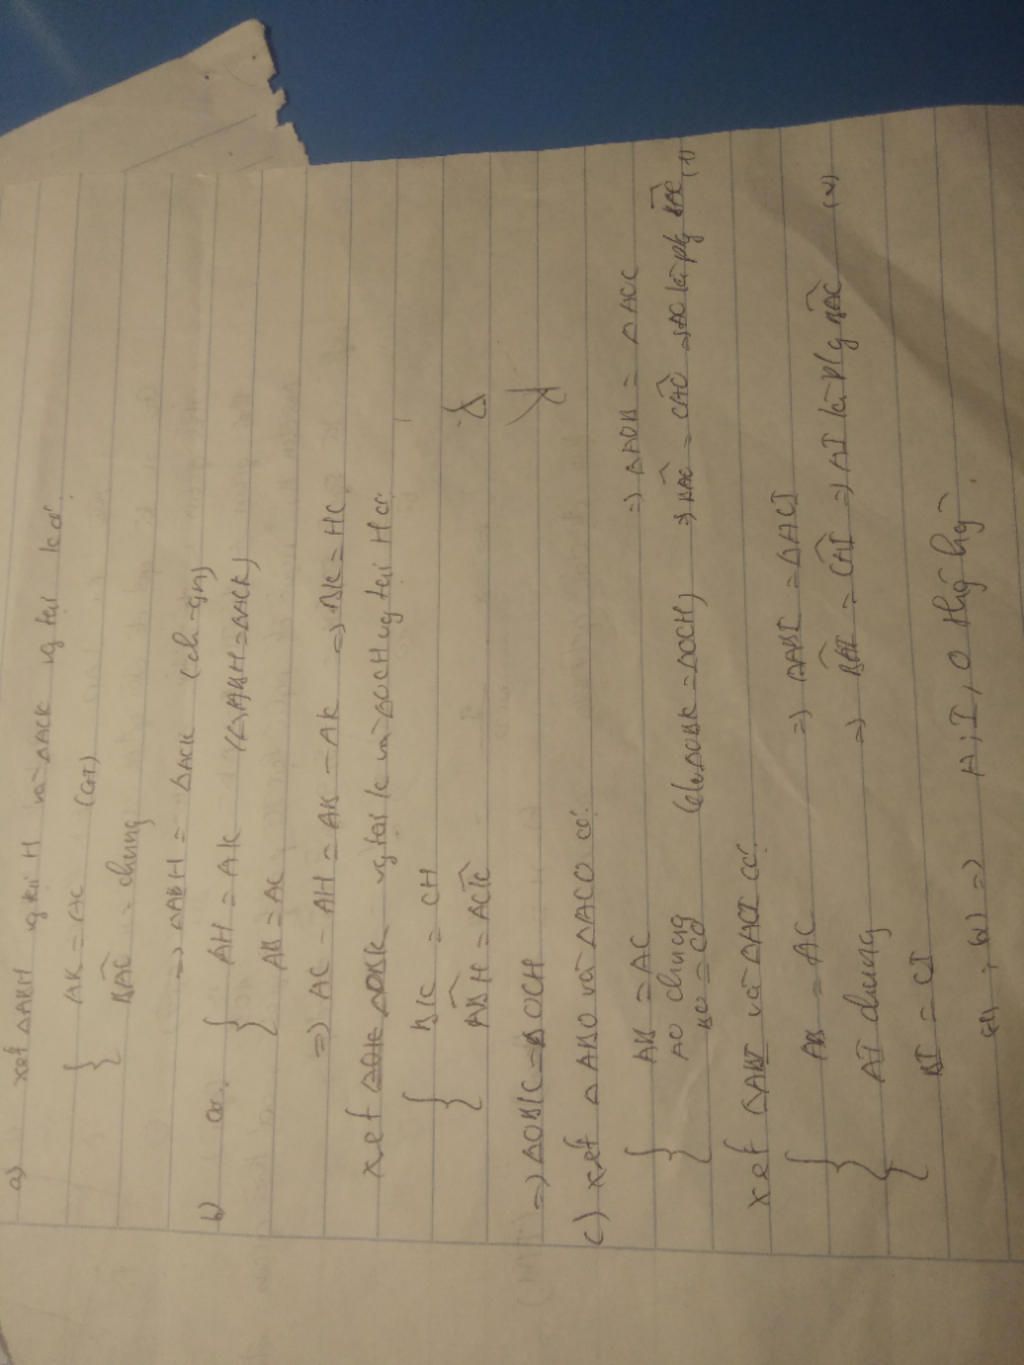 a) xét ΔABH vg tại H và ΔACK vg tại K có:
{ AB = AC (GT)
BAC^ chung
=> ΔABH = ΔACK (ch-gn)
b) có: { AH = AK (ΔABH = ΔACK)
AB = AC
=> AC - AH = AB - AK => BK = HC
xét ΔOBK vg tại K và ΔOCH vg tại H có:
{ BK = CH
ABH^ = ACK^
=> ΔOBK = ΔOCH
c) xét ΔABO và ΔACO có:
{ AB = AC => ΔAOB = ΔAOC
AO chung
BO = CO (do ΔOBK = ΔOCH) => BAO^ = CAO^ => AO là pg BAC^ (1)
xét ΔABI và ΔACI có:
{ AB = AC => ΔABI = ΔACI
AI chung => BAI^ = CAI^ => AI là p/g BAC^ (2)
BI = CI
(1), (2) => A, I, O thg hg.